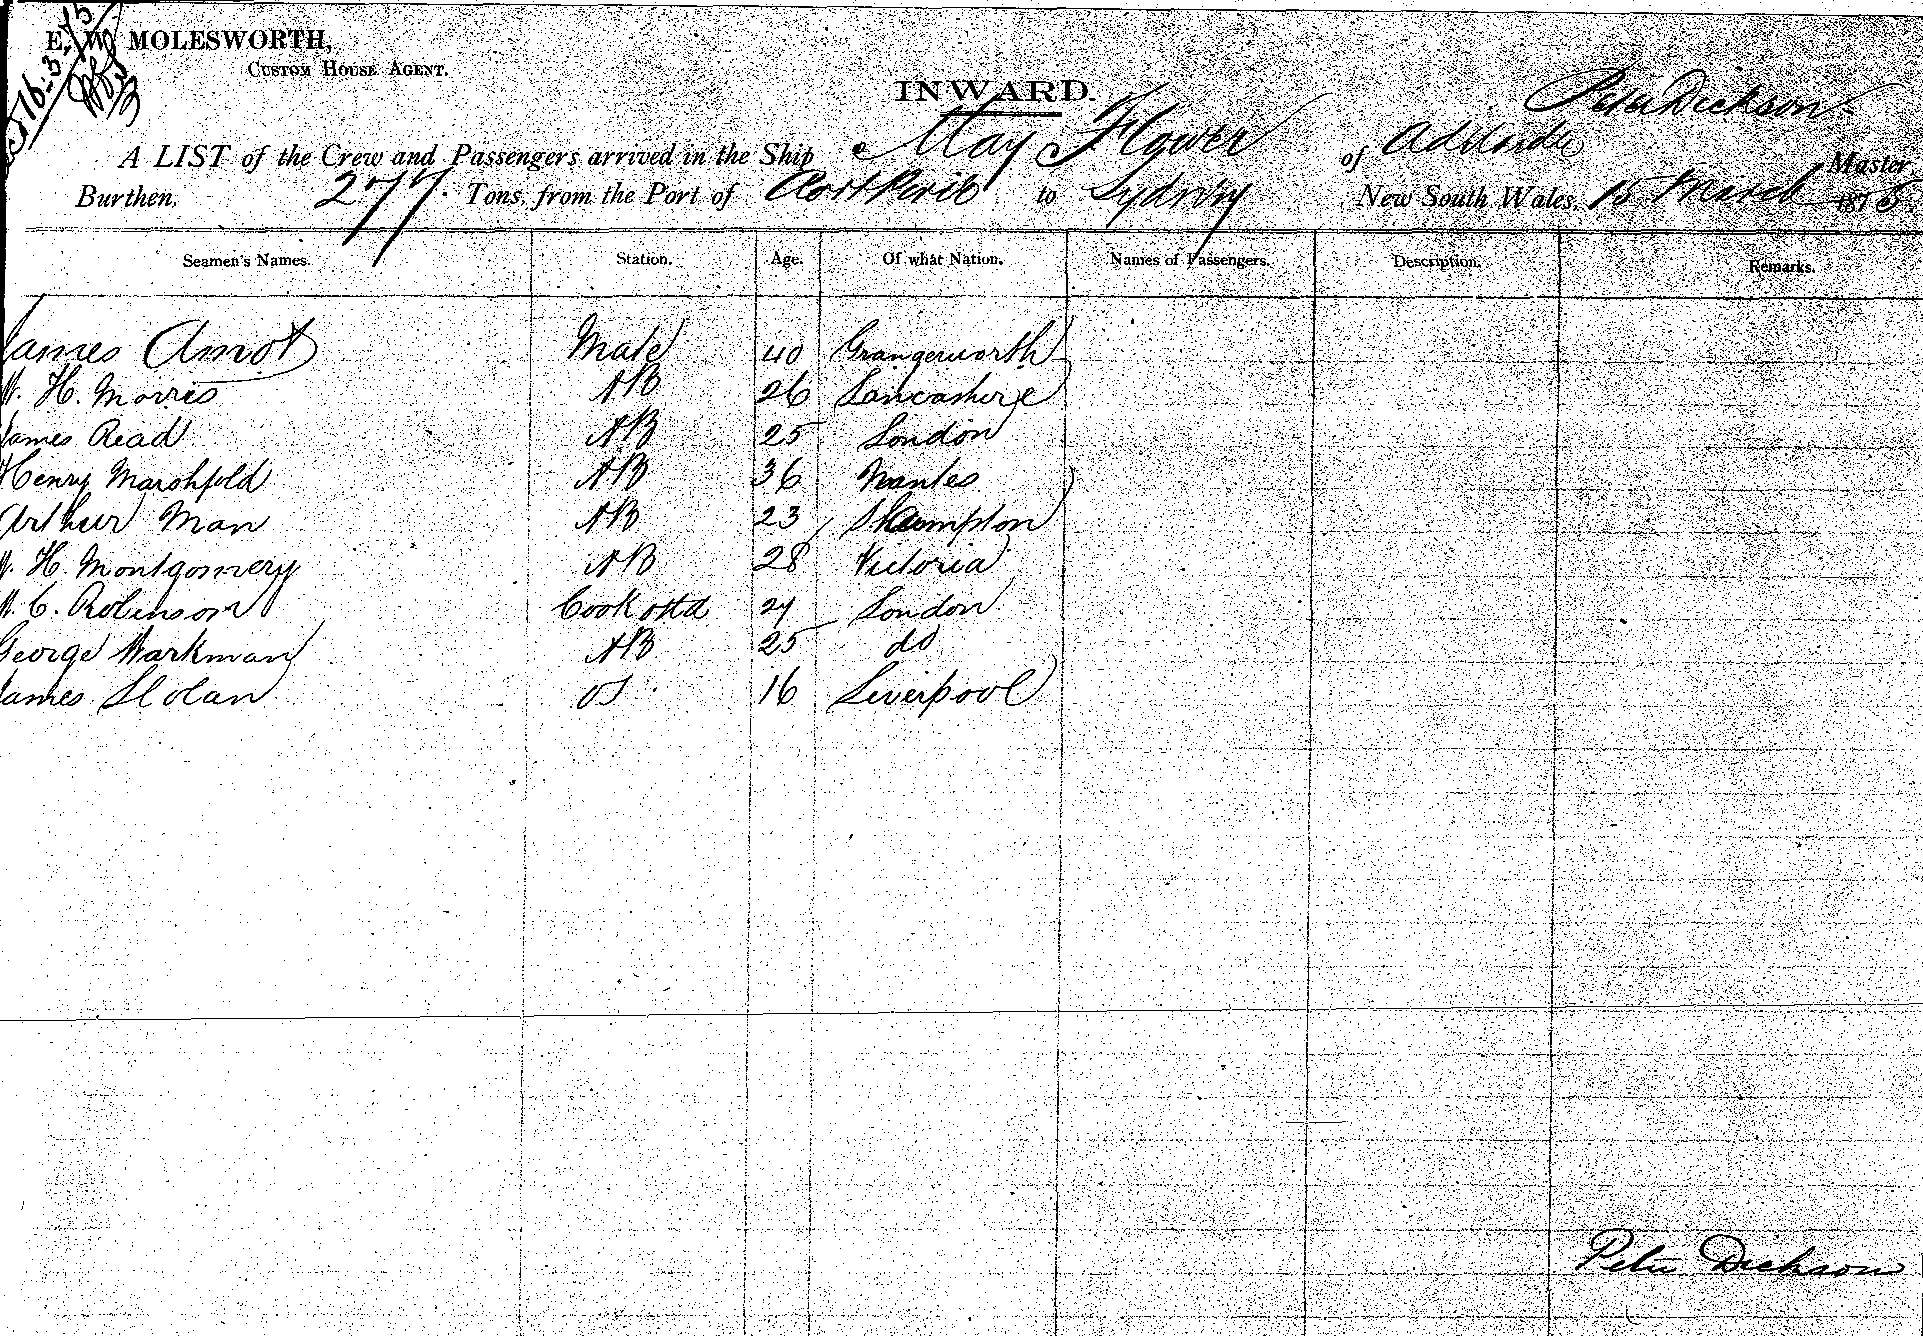 E. W. MOLESWORTH,
CUSTOM HOUSE AGENT.
16-3-75
INWARD.
Peter Dickson
A LIST of the Crew and Passengers arrived in the Ship May Flower of Adelaide Master
Burthen, 277 Tons, from the Port of Port Pirie to Sydney New South Wales, 15 March 1875
Seamen's Names. Station. Age. Of what Nation. Names of Passengers. Description. Remarks.
James Amot Mate 40 Grangeworth
W. H. Morris AB 26 Lancashire
James Read AB 25 London
Henry Marshfeld AB 36 Nantes
Arthur Man AB 23 SHampton
W. H. Montgomery AB 28 Victoria
W. C. Robinson Cook & Std 24 London
George Warkman AB 25 do
James Slolan OS 16 Liverpool
Peter Dickson